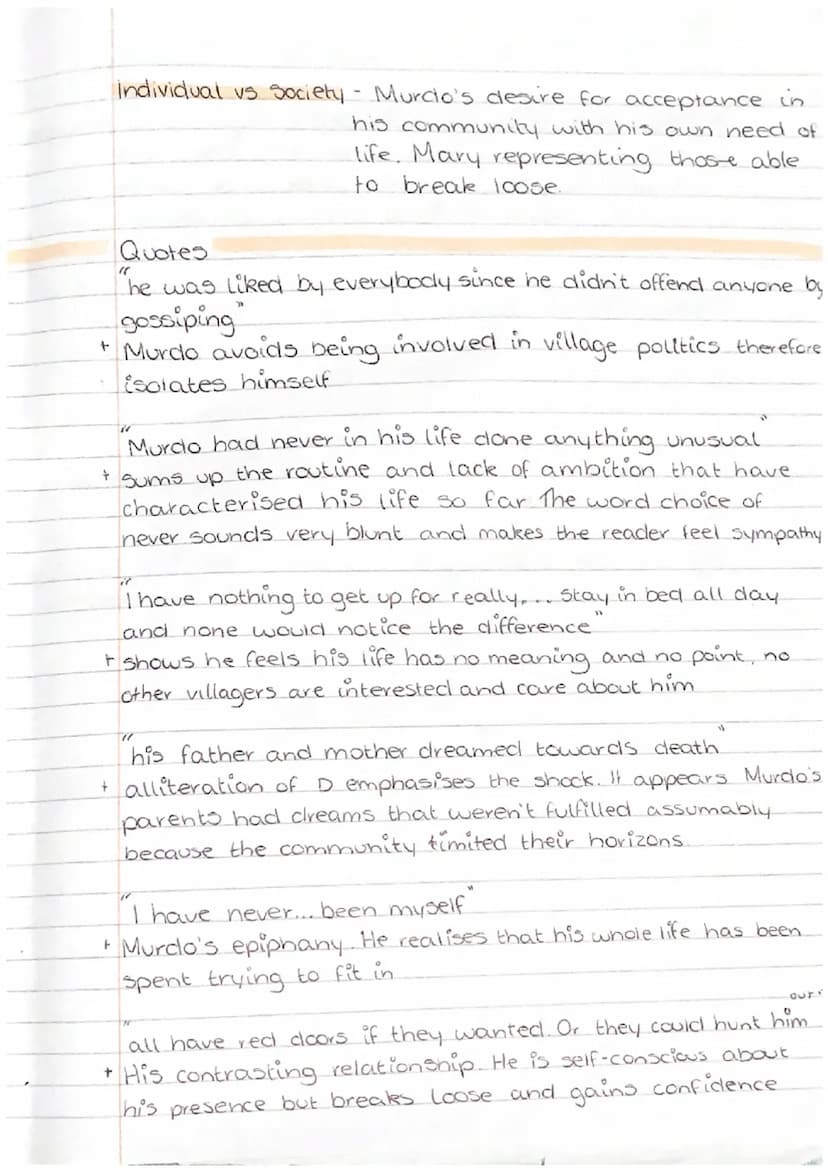 individual vs society - Murdo's desire for acceptance in
his community with his own need of
life. Mary representing those able
to break loose.
Quotes
"he was liked by everybody since he didn't offend anyone by
gossiping"
+ Murdo avoids being involved in village politics therefore
isolates himself
"Murdo had never in his life done anything unusual"
+ sums up the routine and lack of ambition that have
characterised his life so far The word choice of
never sounds very blunt and makes the reader feel sympathy
"I have nothing to get up for really,... stay in bed all day
and none would notice the difference"
+ shows he feels his life has no meaning and no point, no
other villagers are interested and care about him
"his father and mother dreamed towards death"
+ alliteration of D emphasises the shock. It appears Murdo's
parents had dreams that weren't fulfilled assumably
because the community limited their horizons
"I have never... been myself"
+ Murdo's epiphany. He realises that his whole life has been
spent trying to fit in
"all have red doors if they wanted. Or they could hunt him out"
+ His contrasting relationship. He is self-conscious about
his presence but breaks loose and gains confidence